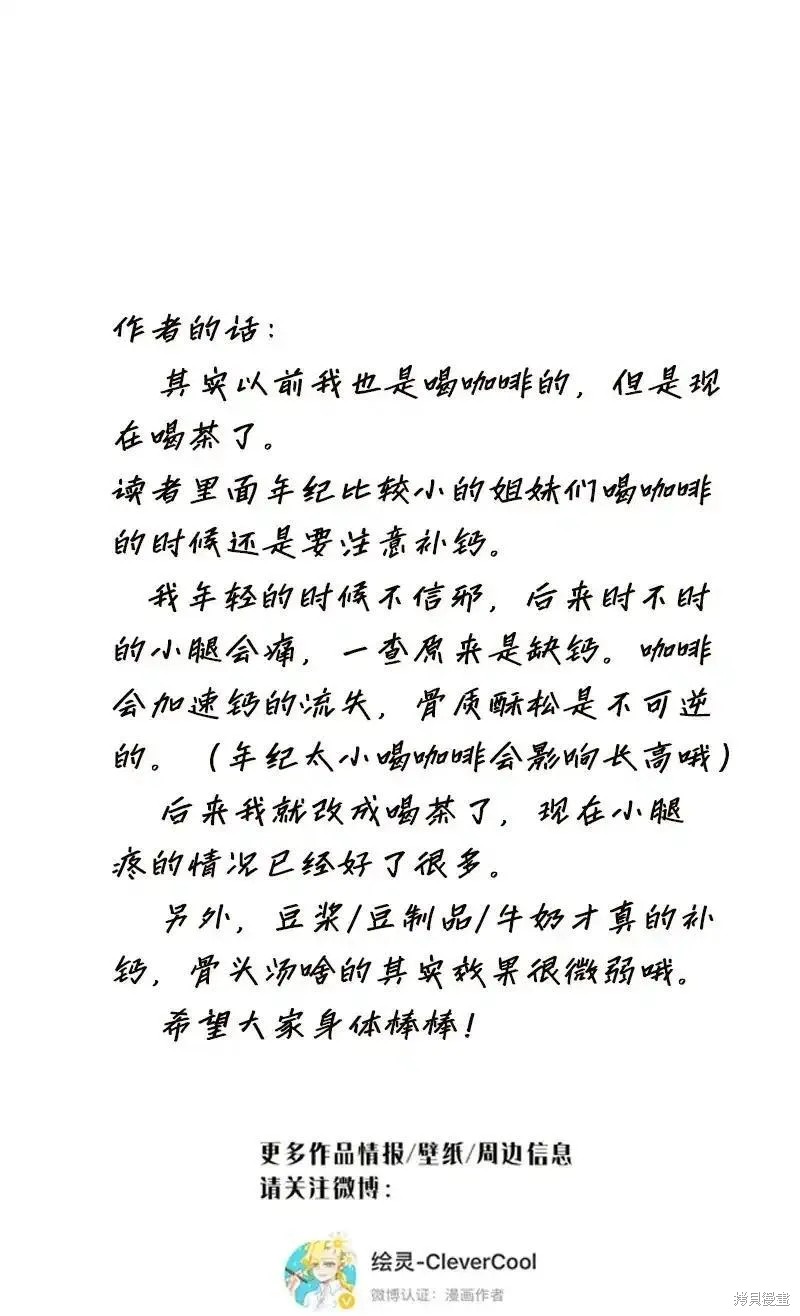 作者的话：
其实以前我也是喝咖啡的，但是现
在喝茶了。
读者里面年纪比较小的姐妹们喝咖啡
的时候还是要注意补钙。
我年轻的时候不信邪，后来时不时
的小腿会痛，一查原来是缺钙。咖啡
会加速钙的流失，骨质酥松是不可逆
的。（年纪太小喝咖啡会影响长高哦）
后来我就改成喝茶了，现在小腿
疼的情况已经好了很多。
另外，豆浆/豆制品/牛奶才真的补
钙，骨头汤啥的其实效果很微弱哦。
希望大家身体棒棒！
更多作品情报/壁纸/周边信息
请关注微博：
绘灵-CleverCool
微博认证：漫画作者
拷貝漫畫